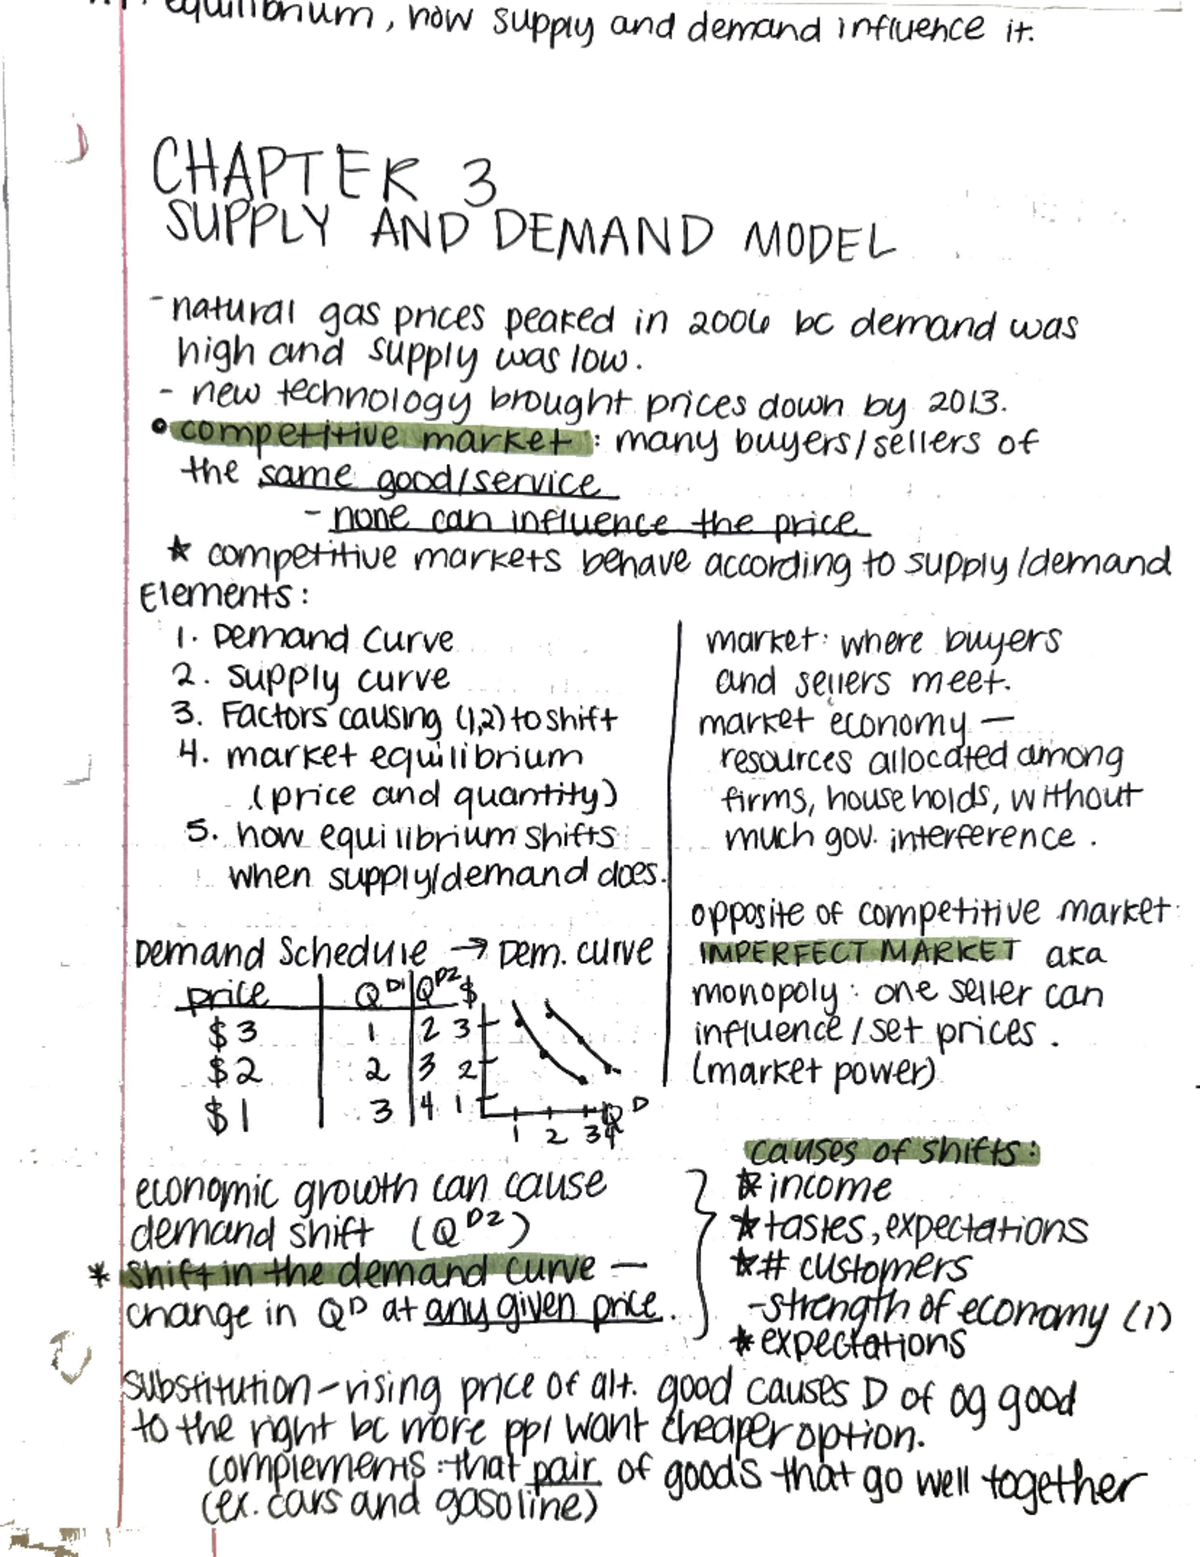 equilibrium, how supply and demand influence it.
CHAPTER 3
SUPPLY AND DEMAND MODEL
- natural gas prices peaked in 2006 bc demand was
high and supply was low.
- new technology brought prices down by 2013.
• competitive market: many buyers/sellers of
the same good/service
- none can influence the price
★ competitive markets behave according to supply/demand
Elements:
1. Demand Curve
2. Supply curve
3. Factors causing (1,2) to shift
4. market equilibrium
(price and quantity)
5. how equilibrium shifts
when supply/demand does.
market: where buyers
and sellers meet.
market economy —
resources allocated among
firms, households, without
much gov. interference.
opposite of competitive market:
IMPERFECT MARKET aka
monopoly: one seller can
influence/set prices.
(market power)
Demand Schedule → Dem. curve
price Q^D1 Q^D2 $
$3 1 2 3
$2 2 3 2
$1 3 4 1
Q^D
1 2 3 4
economic growth can cause
demand shift (Q^D2)
* shift in the demand curve —
change in Q^D at any given price.
causes of shifts:
★ income
★ tastes, expectations
★ # customers
- strength of economy (1)
★ expectations
substitution - rising price of alt. good causes D of og good
to the right bc more ppl want cheaper option.
complements: that pair of goods that go well together
(ex. cars and gasoline)